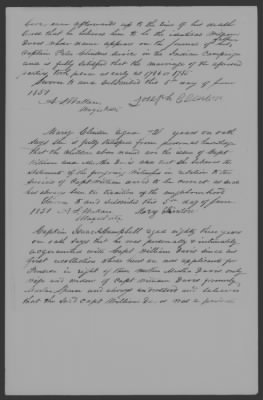 ever afterwards up to the time of his death
that he believes him to be the identical William
Davis whose name appears on the Journal of his
Captain Pete Clintons device in the Indian Campaign
and is fully satisfied that the marriage of the aforesaid
parties took place as early as 1784 or 1785
Sworn to and subscribed this 5th day of June
1851
A S Wallace Joseph Clinton
Magistrate
Mary Clinton aged years on oath
says she is fully satisfied from personal knowledge
that the children above named are the heirs of Capt
William and Martha Davis and that she believes the
statement of the foregoing Witness in relation to the
service of Capt William Davis to be correct as such
has always been the tradition of the neighborhood
Sworn to and subscribed this 5th day of June
1851 A S Wallace Mary Clinton
Magistrate
Captain Isaac Campbell aged eighty three years
on oath says that he was personally & intimately
acquainted with Capt William Davis since his
first recollection whose heirs are now applicants for
Pension in right of their Mother Martha Davis only
wife and widow of Capt William Davis formerly
Martha and always understood and believes
that the said Capt William Davis was a